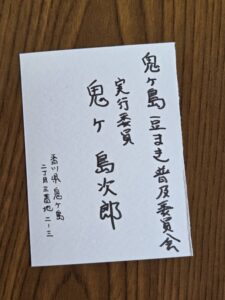 鬼ヶ島豆まき普及委員会
実行委員
鬼ヶ島次郎
香川県鬼ヶ島
二丁目三番地二ー三